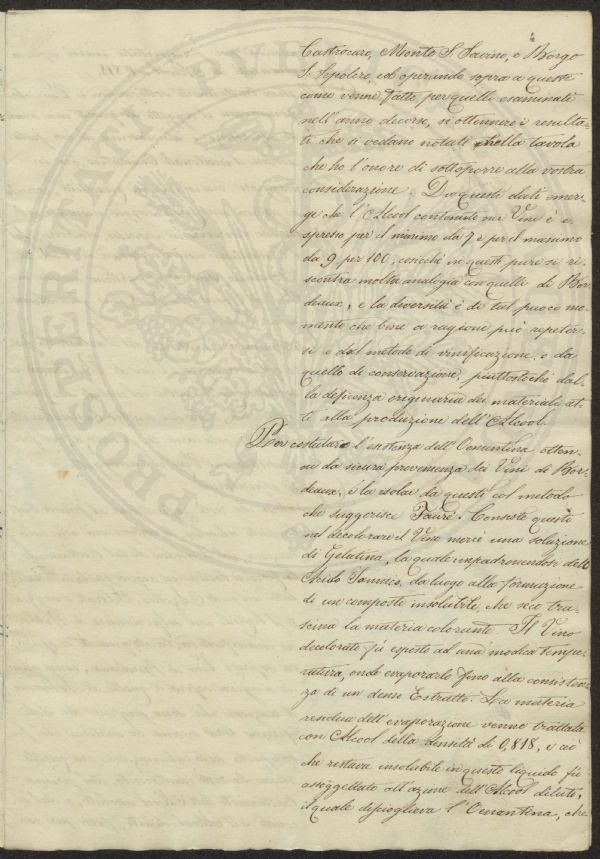 4
Castrocaro, Monte S. Savino, e Borgo
S. Sepolcro, ed operando sopra a questi
come venne fatto per quelli esaminati
nell'anno decorso, si ottennero i resulta-
ti che si vedano notati nella tavola
che ho l'onore di sottoporre alla vostra
considerazione. Da questi dati emer-
ge che l'Alcool contenuto nei Vini è e-
spresso per il minimo da 7 e per il massimo
da 9 per 100; cosicchè in questi pure si ri-
scontra molta analogia con quelli di Bor-
deaux, e la diversità è di tal poco mo-
mento che bene a ragione può repeter-
si e dal metodo di vinificazione, e da
quello di conservazione, piuttostochè dal-
la deficenza originaria dei materiali at-
ti alla produzione dell'Alcool.
Per costatare l'esistenza dell'Oenantina otten-
ni da sicura provenienza dei Vini di Bor-
deaux, e la isolai da questi col metodo
che suggerisce Fauré. Consiste questo
nel decolorare il Vino mercè una soluzione
di Gelatina, la quale impadronendosi dell'
Acido Tannico, da luogo alla formazione
di un composto insolubile, che seco tra-
scina la materia colorante. Il Vino
decolorato fù esposto ad una modica tempe-
ratura, onde evaporarlo fino alla consisten-
za di un denso Estratto. La materia
residua dell'evaporazione venne trattata
con Alcool della densità di 0,818, e ciò
che restava insolubile in questo liquido fù
assoggettato all'azione dell'Alcool diluto,
il quale discioglieva l'Oenantina, che